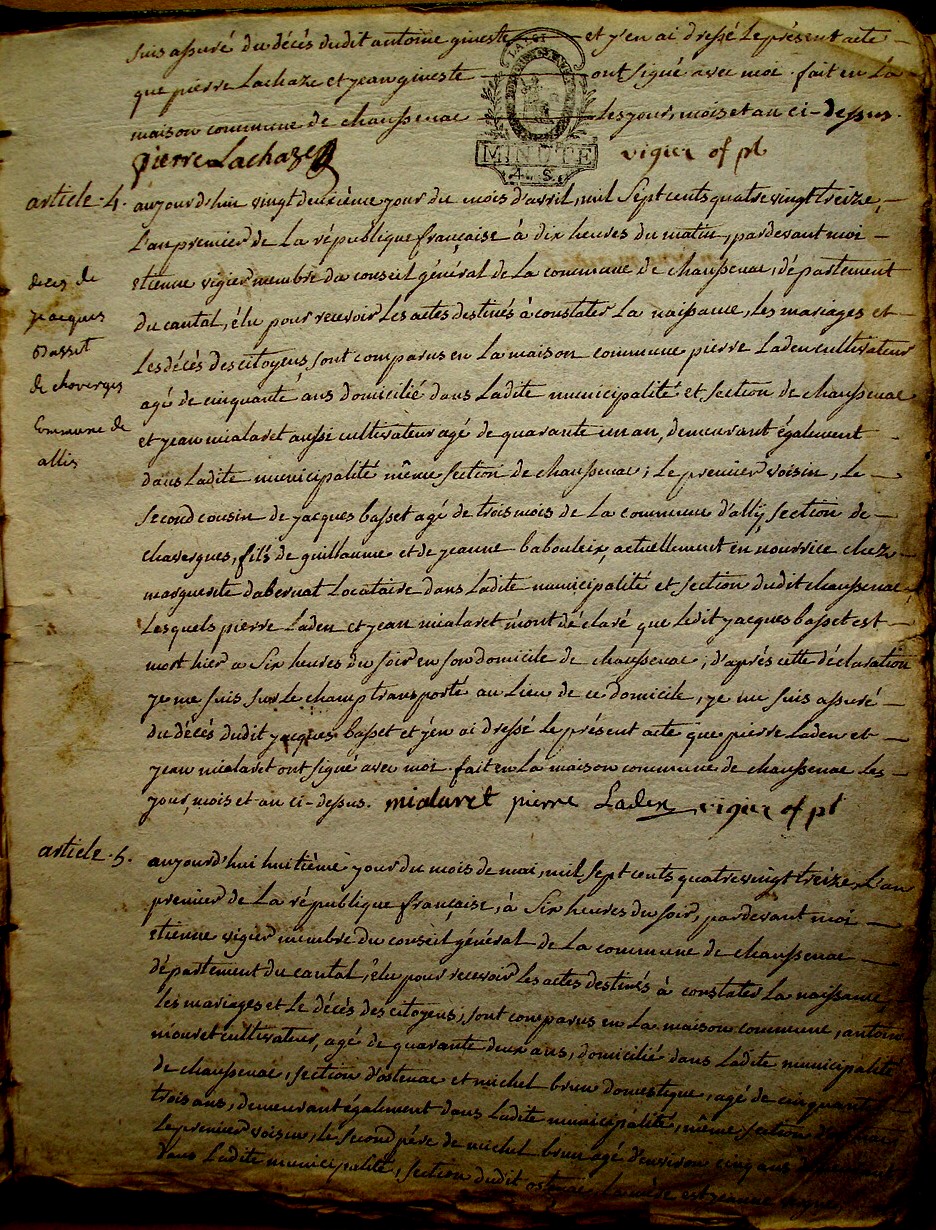 suis assuré du décés dudit antoine gineste et j'en ai dressé le présent acte
que pierre Lachaze et jean gineste ont signé avec moi. fait en la
maison commune de chaussenac les jour mois et an ci-dessus.
LA LOI
MINUTE
4. S.
pierre Lachaze vigier of pl
article .4. aujourd'hui vingt deuxième jour du mois d'avril, mil sept cents quatre vingt treize,
L'an premier de La république française à dix heures du matin, pardevant moi
etienne vigier membre du conseil général de La commune de chaussenac, département
du cantal, élu pour recevoir Les actes destinés à constater La naissance, Les mariages et
Les décès des citoyens, sont comparus en La maison commune pierre Laden cultivateur
agé de cinquante ans domicilié dans Ladite municipalité et section de chaussenac
et jean mialaret aussi cultivateur agé de quarante un an, demeurant également
dans Ladite municipalité même section de chaussenac; Le premier voisin, Le
second cousin de jacques basset agé de trois mois de La commune d'ally, section de
chavergues, fils de guillaume et de jeanne babouleix, actuellement en nourrice chez
marguerite dabernat Locataire dans Ladite municipalité et section dudit chaussenac,
Lesquels pierre Laden et jean mialaret m'ont déclaré que Ledit jacques basset est
mort hier a six heures du soir en son domicile de chaussenac; d'aprés cette déclaration
je me suis sur le champ transporté au Lieu de ce domicile, je me suis assuré
du décés dudit jacques basset et j'en ai dressé Le présent acte que pierre Laden et
jean mialaret ont signé avec moi. fait en La maison commune de chaussenac Les
jour, mois et an ci-dessus. mialaret pierre Laden vigier of pl
deces de
jacques
Basset
de choverges
Commune de
allis
article .5. aujourd'hui huitième jour du mois de mai, mil sept cents quatre vingt treize, L'an
premier de La république française, à six heures du soir, pardevant moi
etienne vigier membre du conseil général de La commune de chaussenac
département du cantal, élu pour recevoir Les actes destinés à constater La naissance,
Les mariages et Le décès des citoyens, sont comparus en La maison commune, antoine
mouret cultivateur, agé de quarante deux ans, domicilié dans Ladite municipalité
de chaussenac, section d'ostenac et michel brun domestique, agé de cinquante
trois ans, demeurant également dans Ladite municipalité, même section
Le premier voisin, Le second pére de michel brun agé d'environ cinq ans
dans Ladite municipalité, section dudit ostenac La mère est jeanne